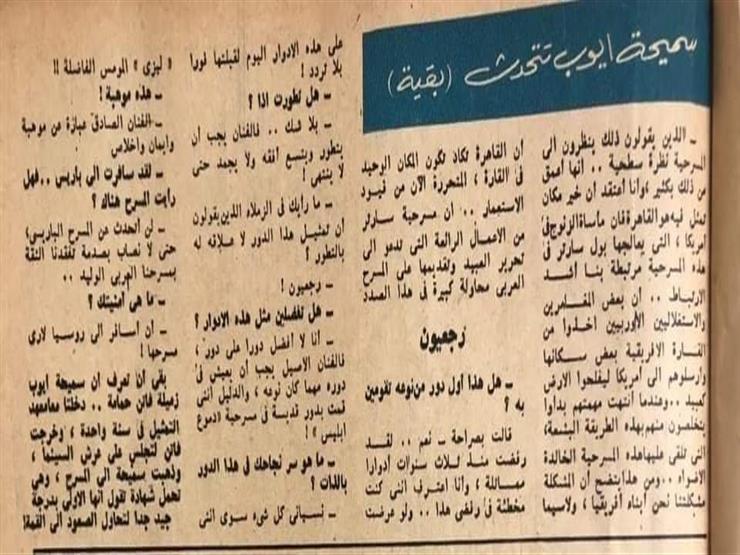 سميحة ايوب تتحدث (بقية)
ـ الذين يقولون ذلك ينظرون الى
المسرحية نظرة سطحية .. انها أعمق
من ذلك بكثير ، وأنا أعتقد أن خير مكان
تمثل فيه هو القاهرة فان مأساة الزنوج فى
أمريكا ، التى يعالجها بول سارتر فى
هذه المسرحية مرتبطة بنا أشد
الارتباط .. أن بعض المغامرين
والاستغلاليين الأوربيين أخذوا من
القارة الافريقية بعض سكانها
وأرسلوهم الى أمريكا ليفلحوا الارض
كعبيد .. وعندما أنتهت مهمتهم بدأوا
يتخلصون منهم بهذه الطريقة البشعة،
التى تلقى عليها هذه المسرحية الخالدة
الاضواء .. ومن هذا يتضح أن المشكلة
مشكلتنا نحن أبناء أفريقيا ، ولاسيما
أن القاهرة تكاد تكون المكان الوحيد
فى القارة ، المتحررة الآن من قيود
الاستعمار .. ان مسرحية سارتر
من الاعمال الرائعة التى تدعو الى
تحرير العبيد وتقديمها على المسرح
العربى محاولة كبيرة فى هذا الصدد
رجعيون
ـ هل هذا أول دور من نوعه تقومين
به ؟
قالت بصراحة ـ نعم .. لقد
رفضت منذ ثلاث سنوات أدوارا
مماثلة ، وأنا اعترف اننى كنت
مخطئة فى رفضى هذا .. ولو عرضت
على هذه الادوار اليوم لقبلتها فورا
بلا تردد !
ـ هل تطورت اذا ؟
ـ بلا شك .. فالفنان يجب أن
يتطور ويتسع أفقه ولا يجمد حتى
لا ينتهى !
ـ ما رأيك فى الزملاء الذين يقولون
أن تمثيل هذا الدور لا علاقه له
بالتطور ؟
ـ رجعيون !
ـ هل تفضلين مثل هذه الادوار ؟
ـ أنا لا أفضل دورا على دور ،
فالفنان الاصيل يجب أن يعيش فى
دوره مهما كان نوعه ، والدليل أننى
قمت بدور قديسة فى سرحية «دموع
ابليس» !
ـ ما هو سر نجاحك فى هذا الدور
بالذات ؟
ـ نسيانى كل شىء سوى اننى
« ليزى » المومس الفاضلة !!
ـ هذه موهبة !
ـ الفنان الصادق عبارة عن موهبة
وايمان واخلاص
ـ لقد سافرت الى باريس .. فهل
رأيت المسرح هناك ؟
ـ لن أتحدث عن المسرح الباريسى،
حتى لا نصاب بصدمة تفقدنا الثقة
بمسرحنا العربى الوليد ..
ـ ما هى أمنيتك ؟
ـ أن أسافر الى روسيا لارى
مسرحها !
بقى أن تعرف ان سميحة أيوب
زميلة فاتن حمامة .. دخلتا معا معهد
التمثيل فى سنة واحدة ، وخرجت
فاتن لتجلس على عرش السينما ،
وذهبت سميحة الى المسرح ، وهى
تحمل شهادة تقول أنها الاولى بدرجة
جيد جدا لتحاول الصعود الى القمة!